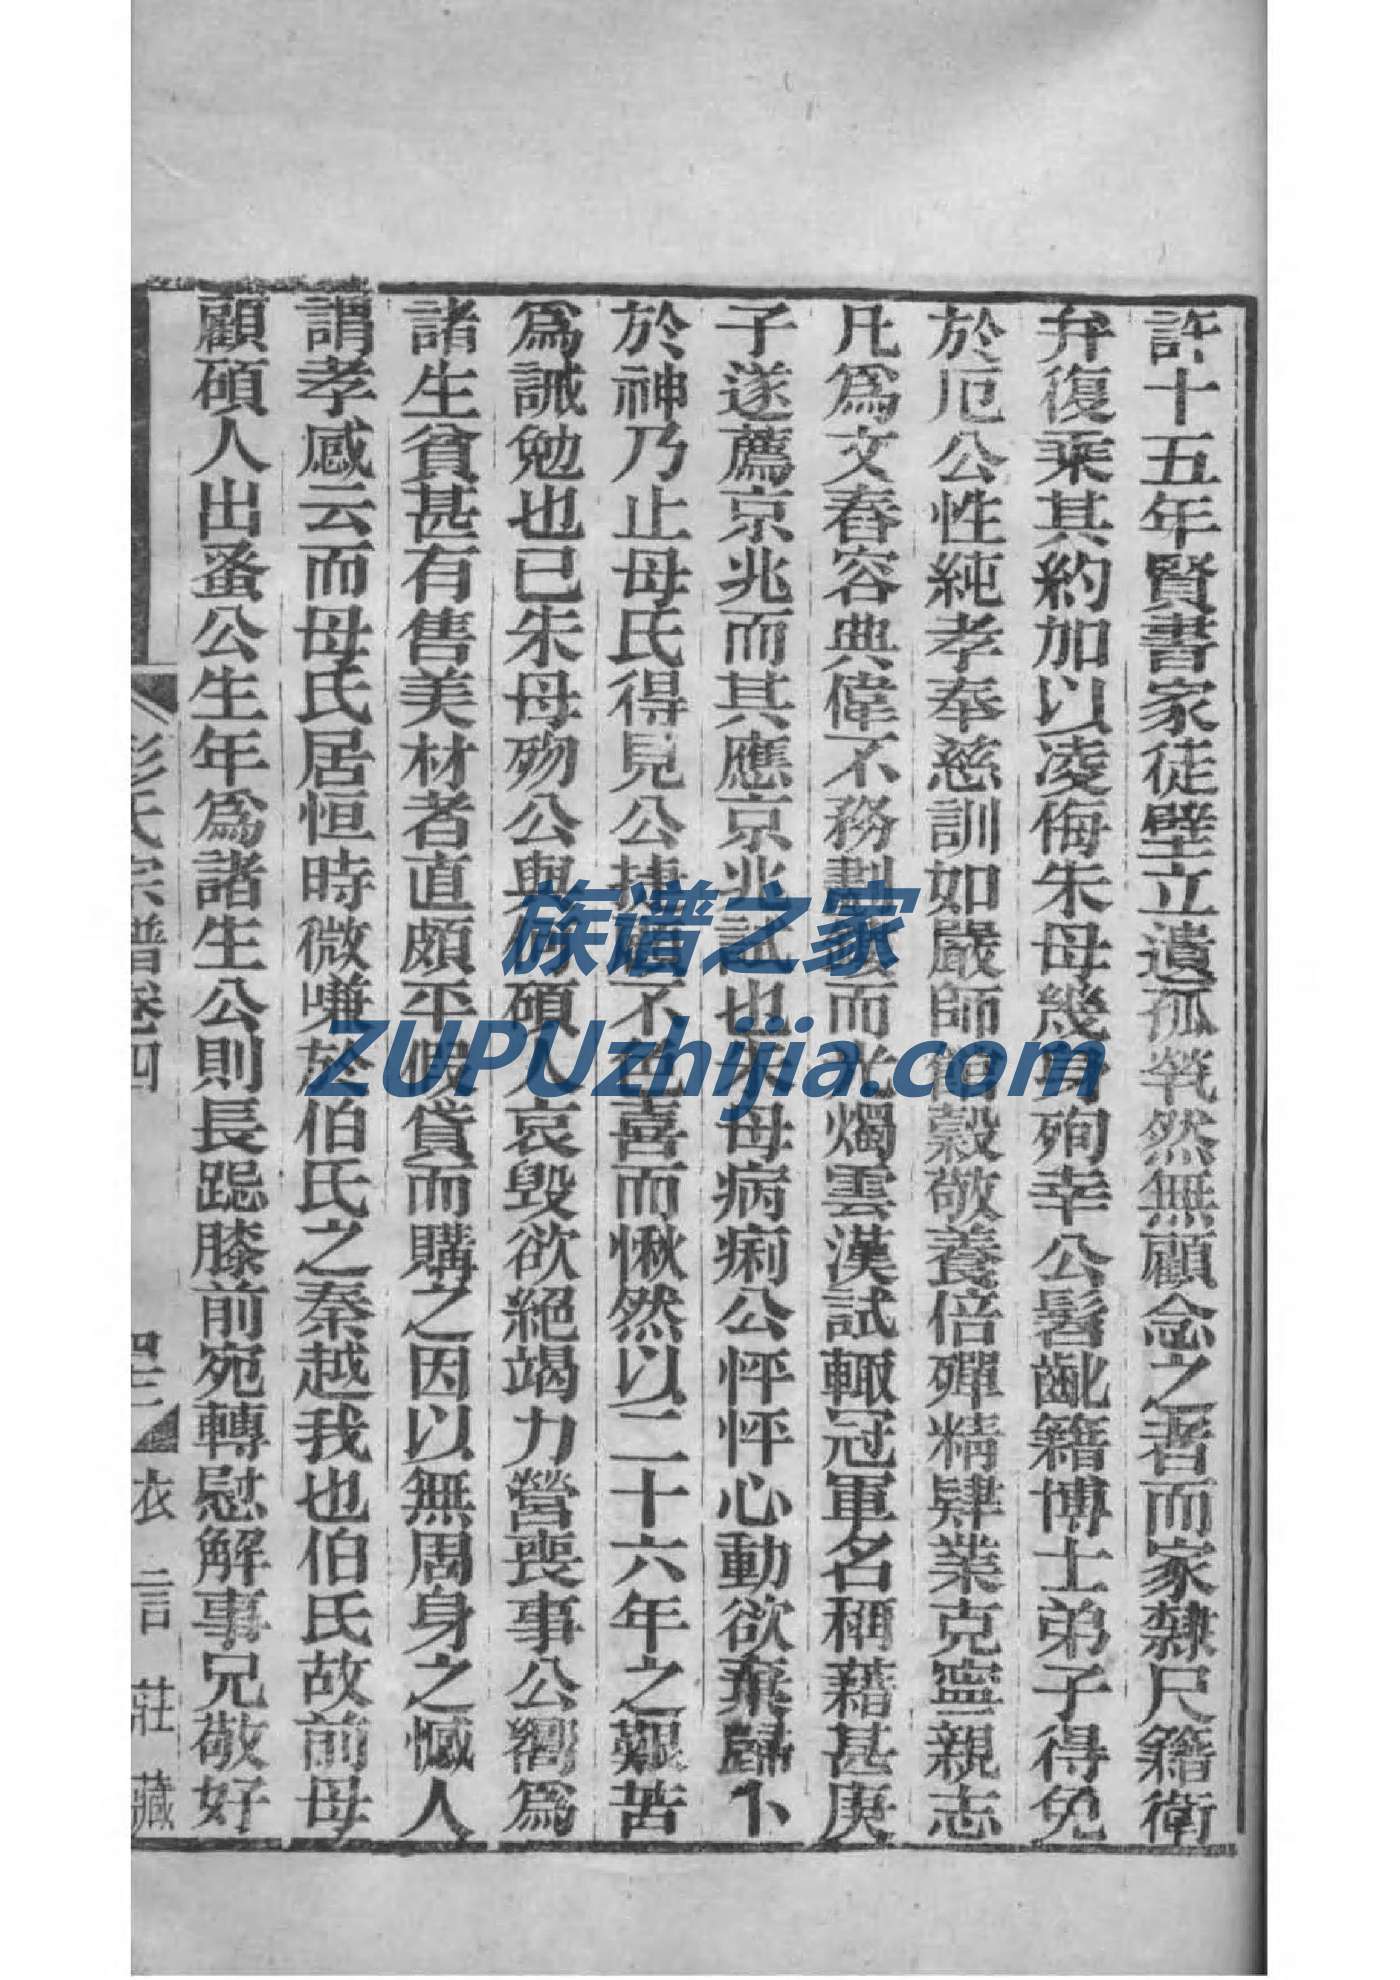 許十五年賢書家徒壁立遺孤煢然無顧念之者而家隸尺籍衛
弁復乘其約加以凌侮朱母幾身殉幸公髫齔籍博士弟子得免
於厄公性純孝奉慈訓如嚴師館穀敬養倍殫精肄業克寧親志
凡爲文舂容典偉不務劃而光燭雲漢試輙冠軍名稱藉甚庚
子遂薦京兆而其應京兆試也朱母病痢公怦怦心動欲棄歸卜
於神乃止母氏得見公捷顧不色喜而愀然以二十六年之艱苦
爲誡勉也已朱母歿公與何碩人哀毀欲絕竭力營喪事公嚮爲
諸生貧甚有售美材者直頗平假貸而購之因以無周身之憾人
謂孝感云而母氏居恒時微嗛於伯氏之秦越我也伯氏故前母
顧碩人出蚤公生年爲諸生公則長跽膝前宛轉慰解事兄敬好
彭氏宗譜卷四
四二
衣言莊藏
族谱之家
ZUPUzhijia.com